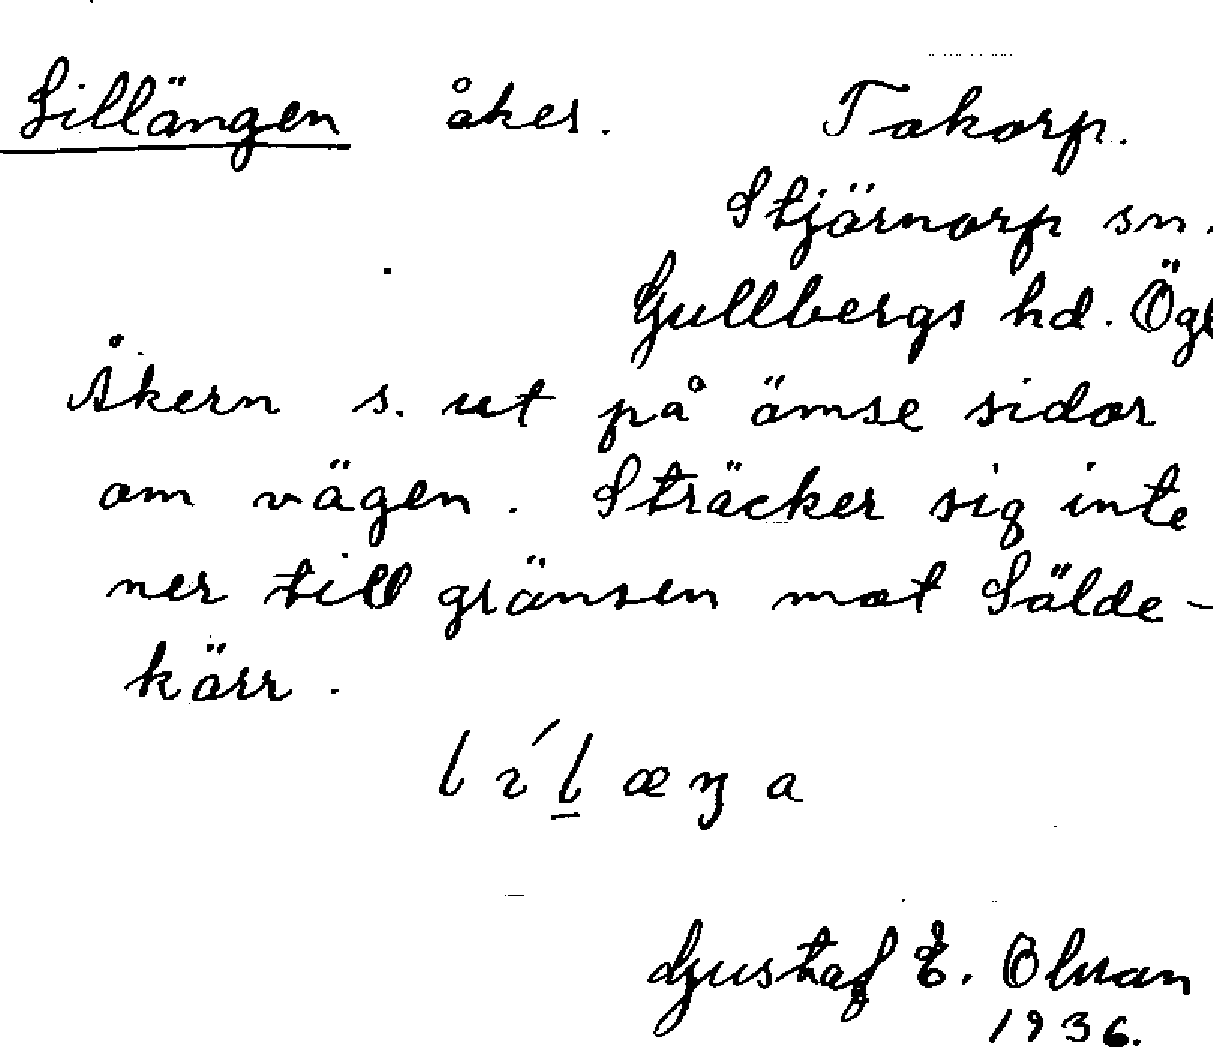 Lillängen åker. Takorp.
Stjärnorp sn.
Gullbergs hd. Ögl
Åkern s. ut på ömse sidor
om vägen. Sträcker sig inte
ner till gränsen mot Sälde-
kärr.
l ɩ́ l̲ æ ŋ a
Gustaf E. Olsson
1936.